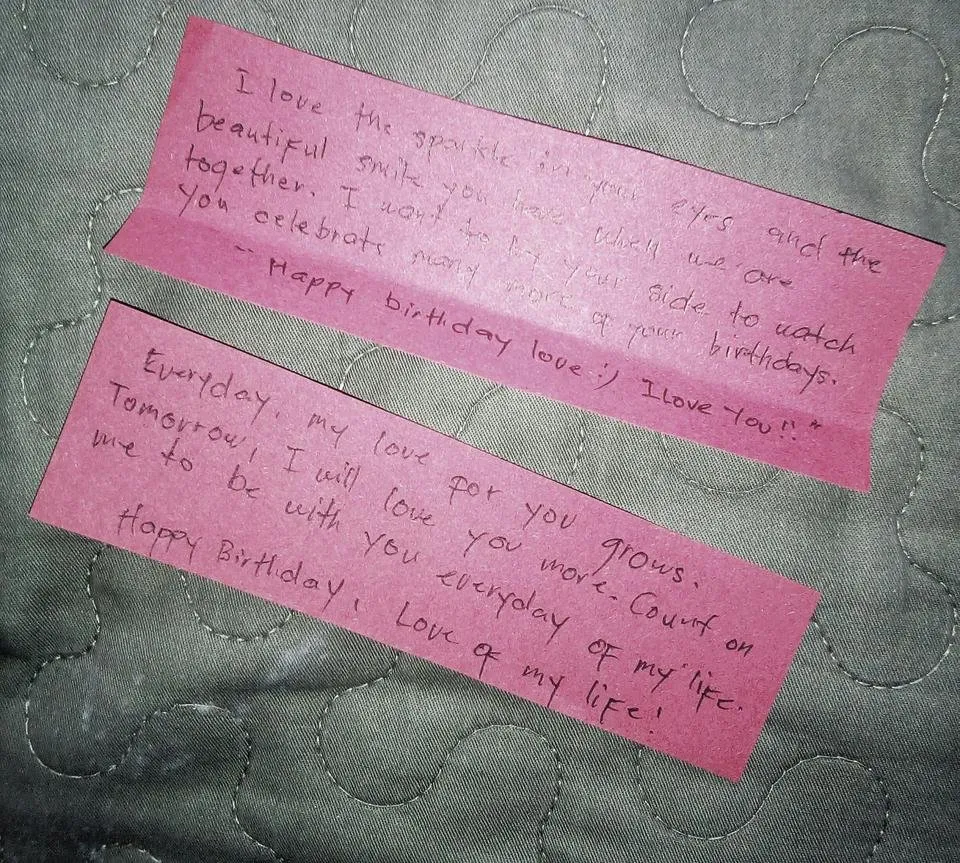 I love the sparkle in your eyes and the
beautiful smile you have when we are
together. I want to by your side to watch
you celebrate many more of your birthdays.
-- Happy birthday love :) I love You!!"
Everyday, my love for you grows.
Tomorrow, I will love you more. Count on
me to be with you everyday of my life.
Happy Birthday, Love of my life!